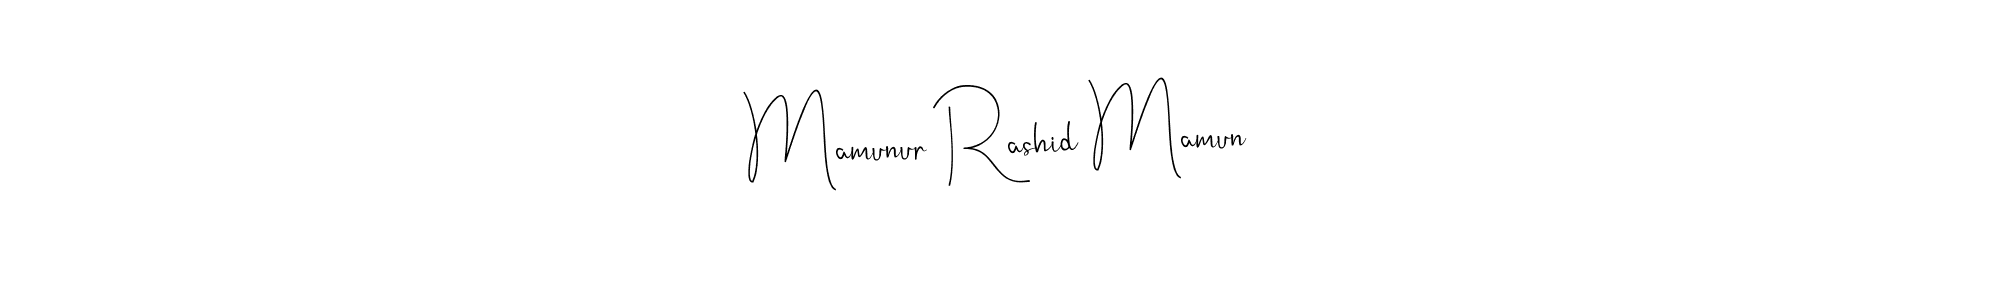 Mamunur Rashid Mamun